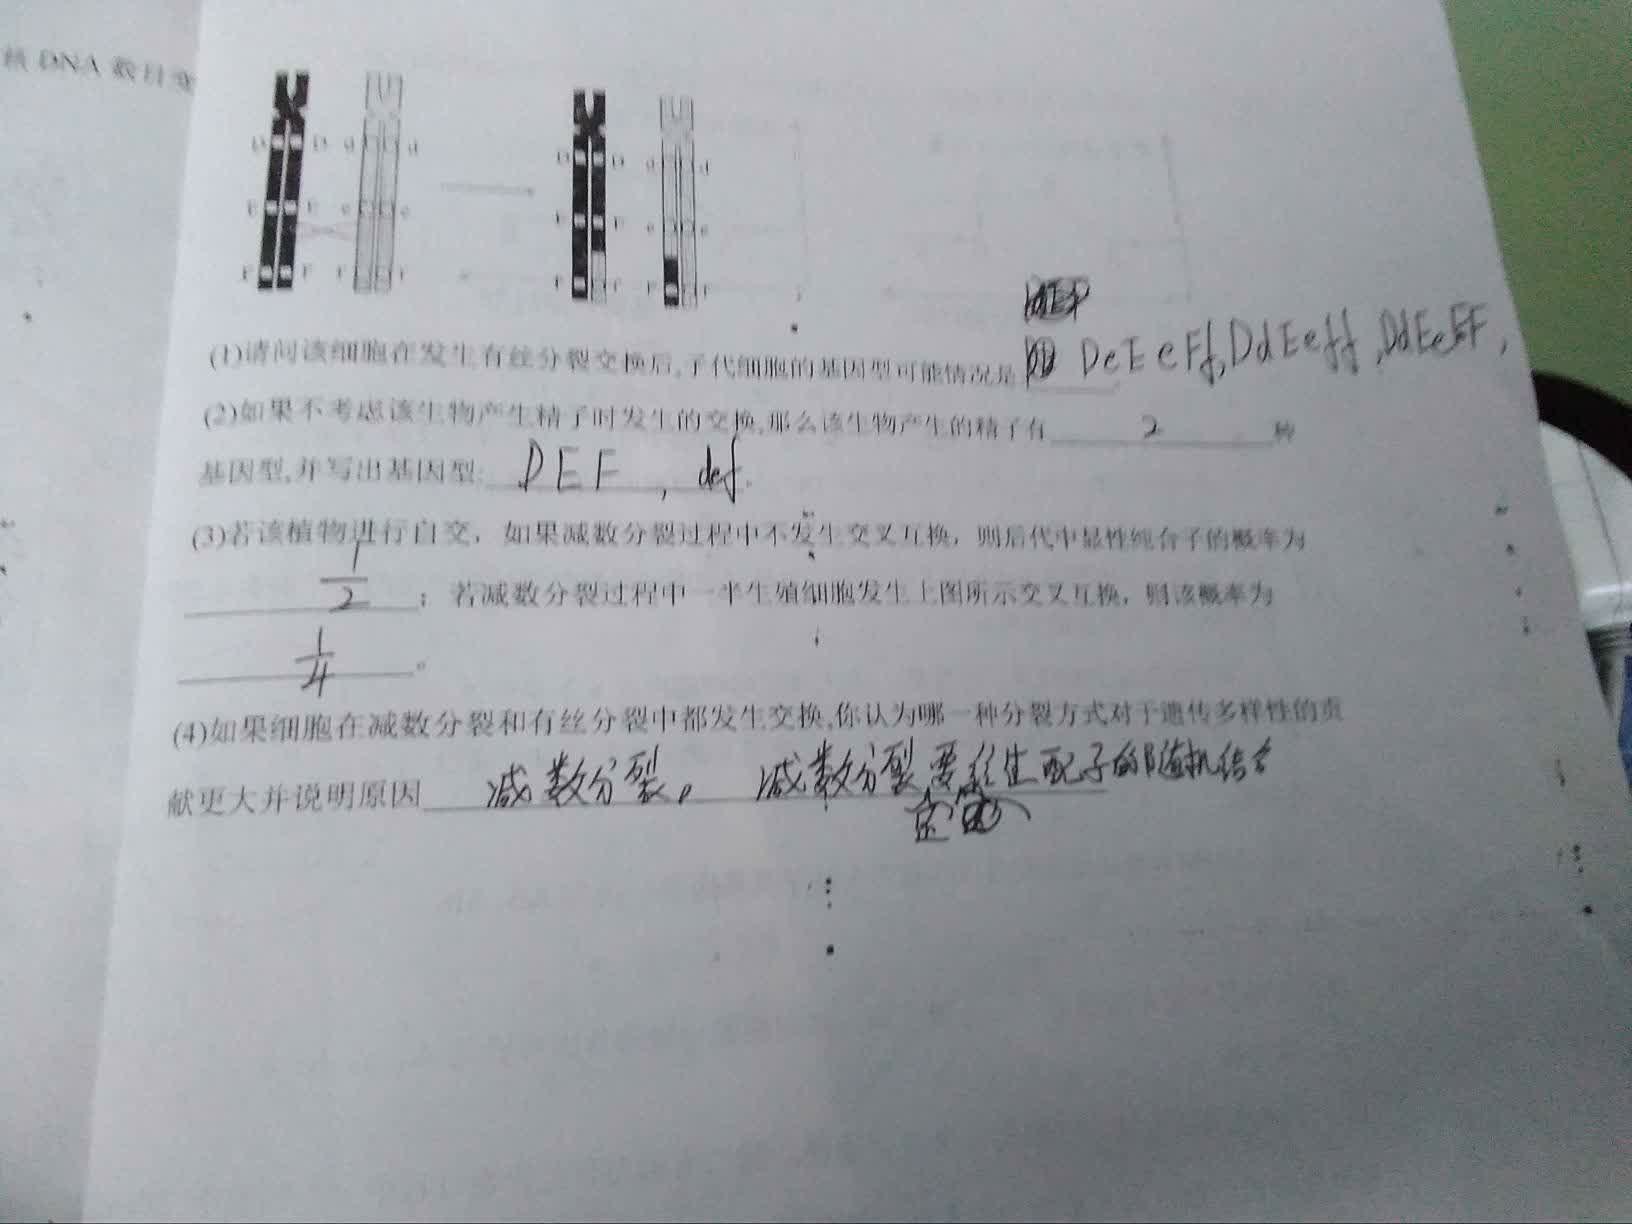 核DNA数目变
D D d d
D D d d
E E e e
E E e e
F F f f
F F f f
(1)请问该细胞在发生有丝分裂交换后,子代细胞的基因型可能情况是 DeEeFf,DdEeff,DdEeFF,
(2)如果不考虑该生物产生精子时发生的交换,那么该生物产生的精子有 2 种
基因型,并写出基因型: DEF , def.
(3)若该植物进行自交，如果减数分裂过程中不发生交叉互换，则后代中显性纯合子的概率为
1/2 ；若减数分裂过程中一半生殖细胞发生上图所示交叉互换，则该概率为
1/4 。
(4)如果细胞在减数分裂和有丝分裂中都发生交换,你认为哪一种分裂方式对于遗传多样性的贡
献更大并说明原因 减数分裂。 减数分裂要 生配子的随机结合